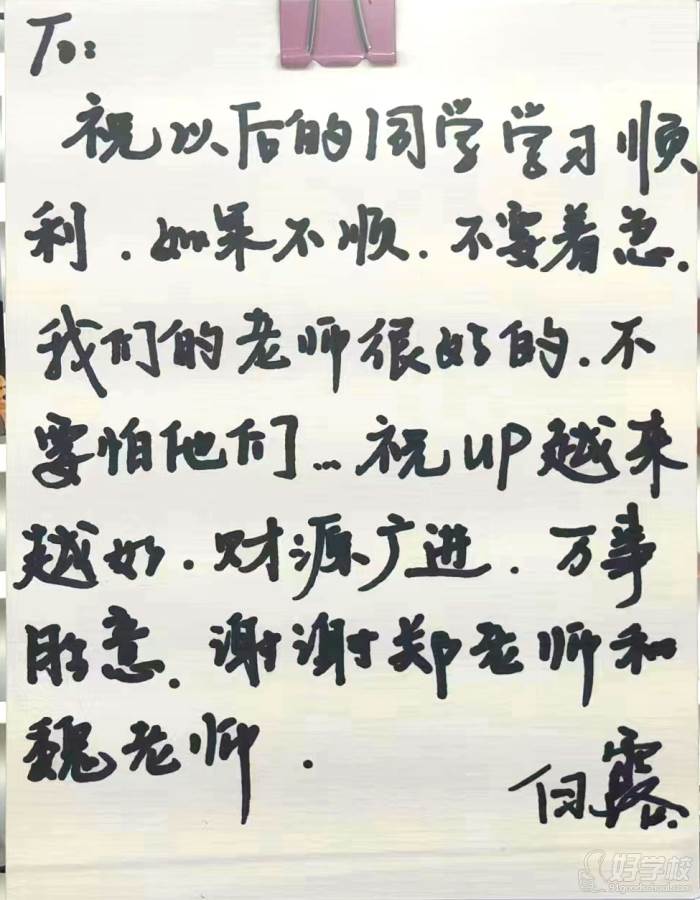 To:
祝以后的同学学习顺
利.如果不顺.不要着急.
我们的老师很好的.不
要怕他们...祝up越来
越好.财源广进.万事
胜意.谢谢郑老师和
魏老师.
白露.
好学校
91goodschool.com